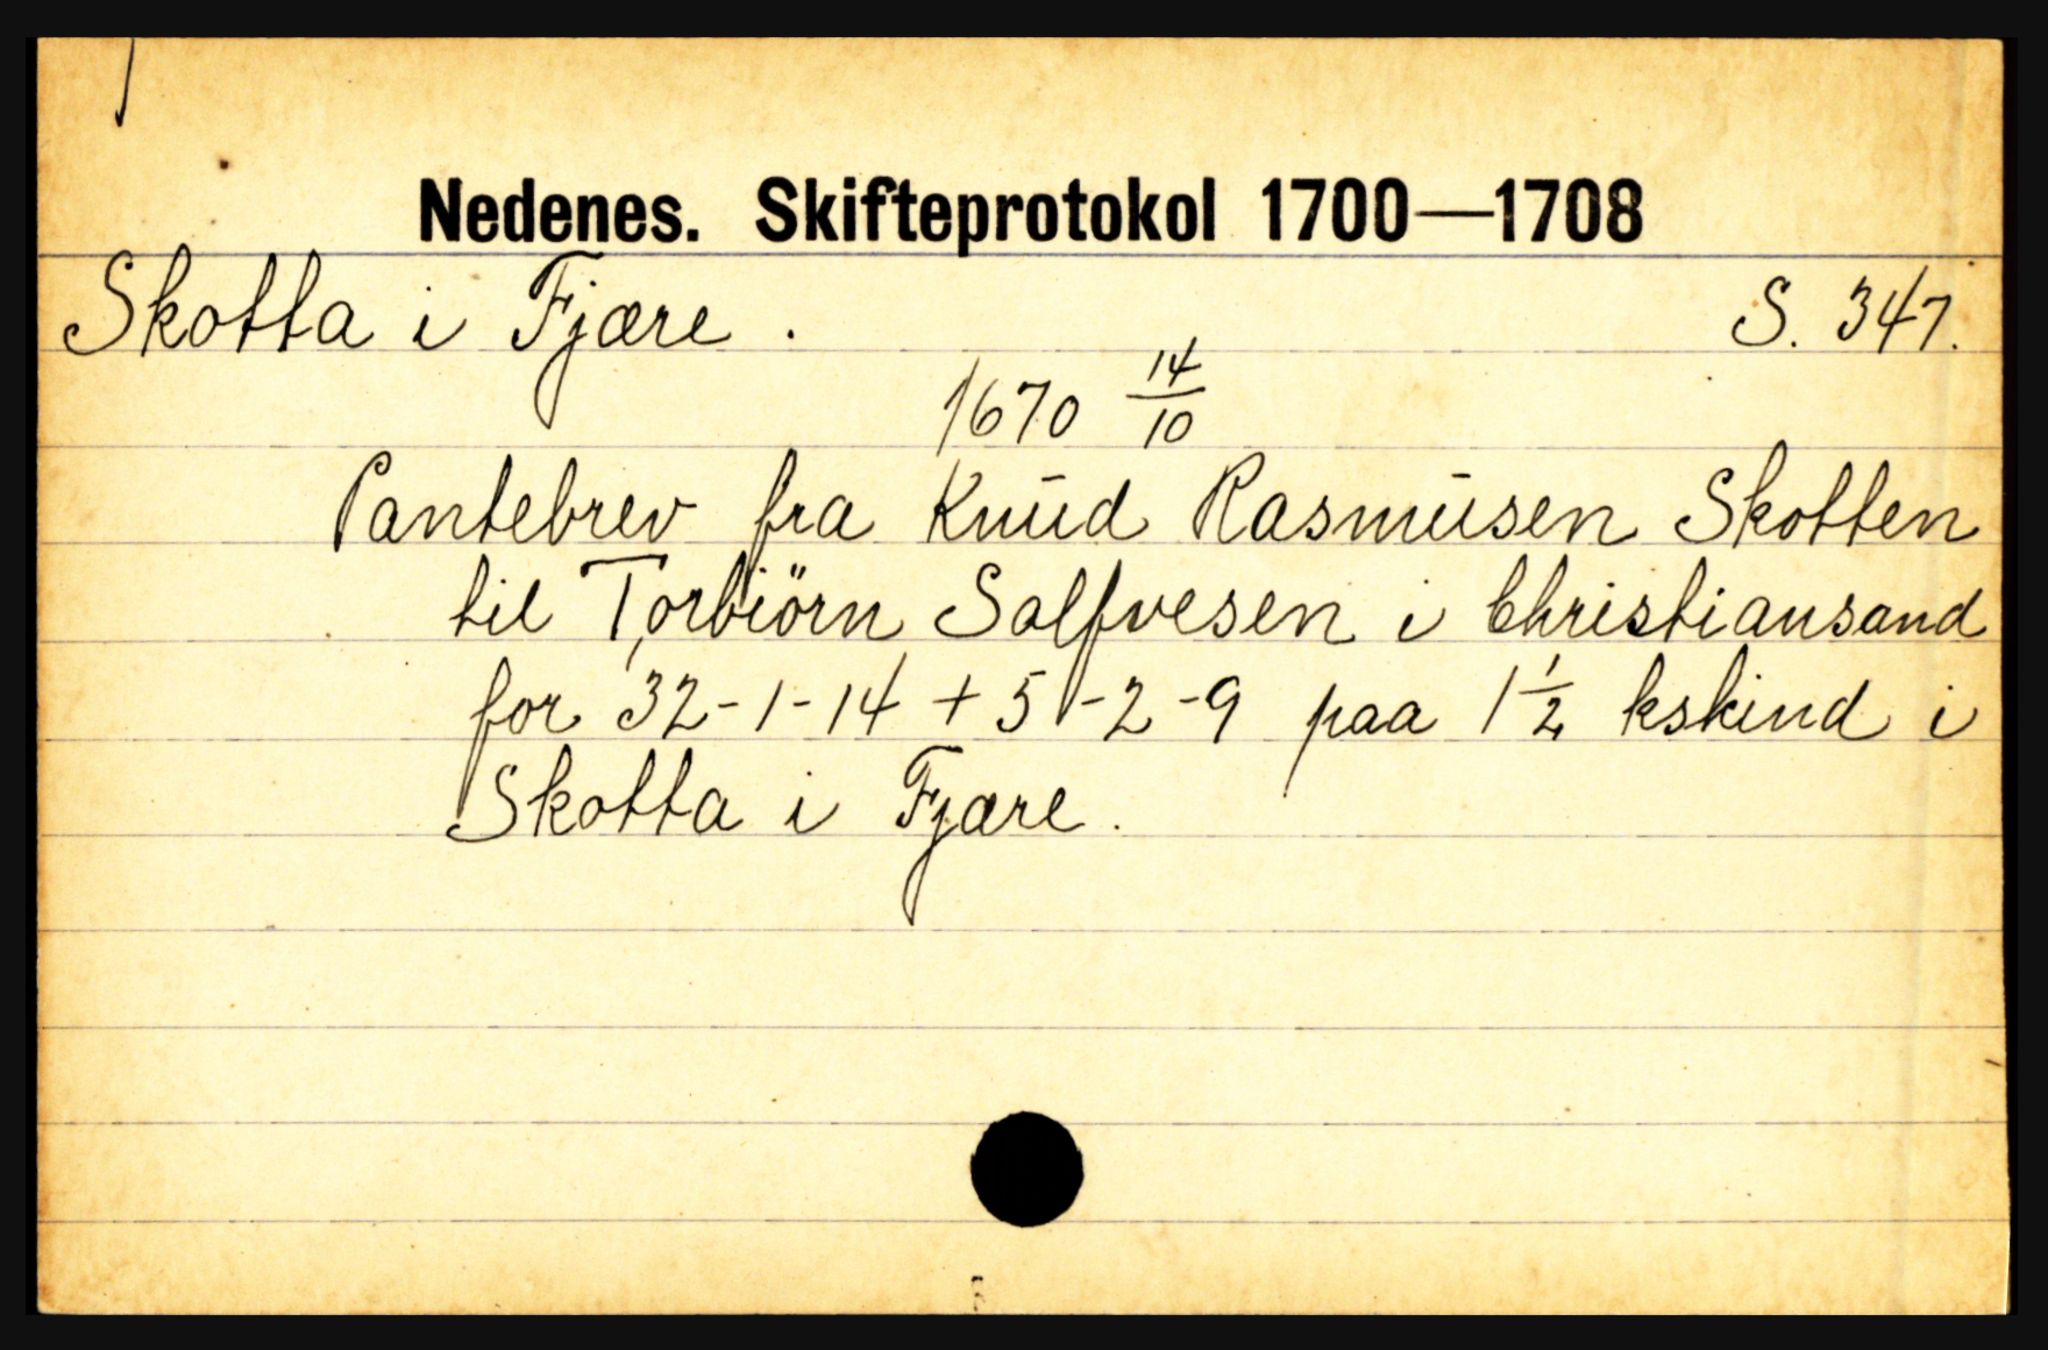 Nedenes. Skifteprotokol 1700—1708
Skotta i Fjære. S. 347.
1670 14/10
Pantebrev fra Knud Rasmusen Skotten
til Torbiörn Solfvesen i Christiansand
for 32-1-14 + 5-2-9 paa 1 1/2 kskind i
Skotta i Fjære.